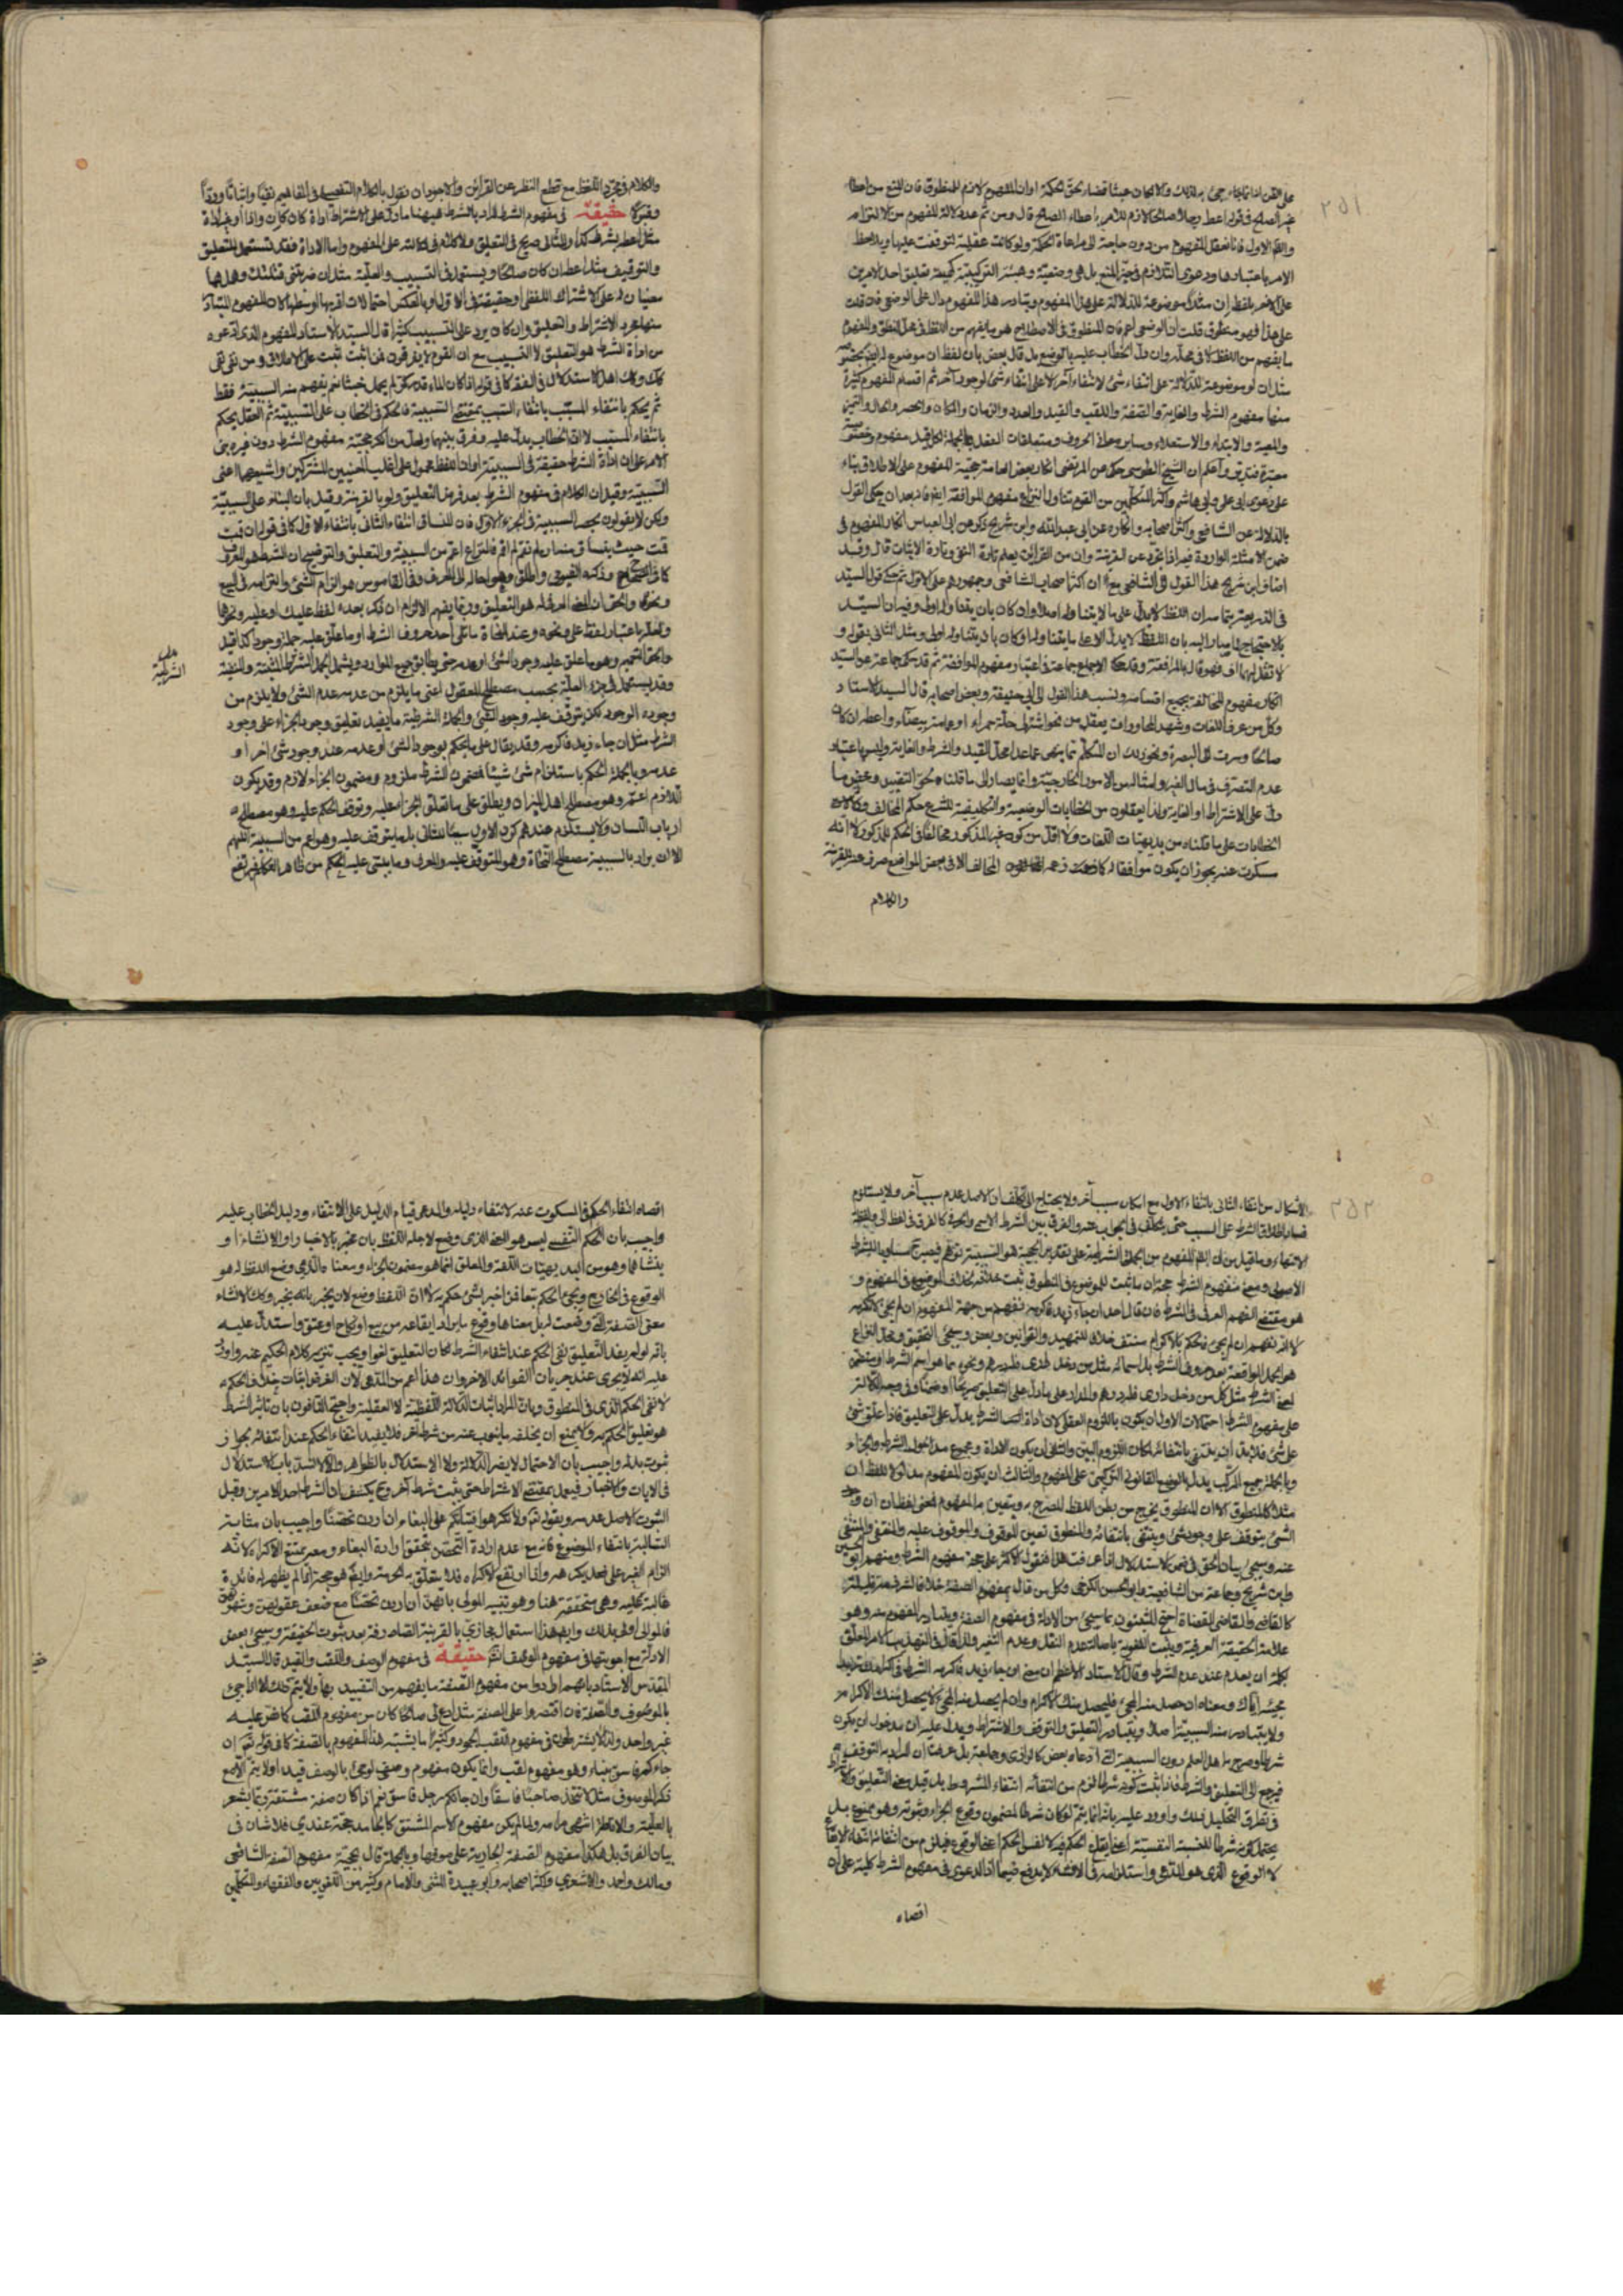 ٢٥١
على القن اذا انما جاء جئ به لذلك والا لكان عبثا قضاء لحق الحكمة اوان المفهوم لازم المنطوق فان المنع من اعطاء
غير الصالح في قوله اعط رجلا صالحا لازم للامر باعطاء الصالح قال ومن ثم عد دلالة المفهوم من الالتزام
والظاهر الاول فانا نعقل المفهوم من دون حاجة الى مراعاة الحكمة ولو كانت عقلية لتوقفت عليها وبملاحظة
الامر باعتبارها ودعوى التلازم في حيز المنع بل هي وضعية وهيئة التركيبية كهيئة تعليق احد الامرين
على الاخر بلفظ ان مثلا موضوعة للدلالة على هذا المفهوم ويتبادر هذا المفهوم دال على الوضع فان قلت
على هذا فهو منطوق قلت ان الوضعي اعم فان المنطوق في الاصطلاح هو ما يفهم من اللفظ في محل النطق والمفهوم
ما يفهم من اللفظ لا في محله وان دل الخطاب عليه بالوضع بل قال بعض بان لفظ ان موضوع له
مثل ان لو موضوعة للدلالة على انتفاء شئ لانتفاء آخر لا على انتفاء شئ لوجود آخر ثم اقسام المفهوم كثيرة
منها مفهوم الشرط والغاية والصفة واللقب والقيد والعدد والزمان والمكان والحصر والحال والتميز
والمعية والابتداء والاستعلاء وساير معاني الحروف ومتعلقات الفعل وبالجملة لكل قيد مفهوم
واعلم ان الشيخ الطوسي حكى عن المرتضى انكار بعض العامة حجية المفهوم على الاطلاق بناء
على دعوى ابى على وابى هاشم واكثر المتكلمين من القوم تناول النزاع مفهوم الموافقة ايضا فانه بعد ان حكى القول
بالدلالة عن الشافعي واكثر اصحابه وانكاره عن ابى عبد الله وابن شريح ذكر عن ابى العباس انكار المفهوم في
ضمن الامثلة الواردة فيه اذا تجرد عن القرينة وان من القرائن يعلم تارة النفي وتارة الاثبات قال وقد
اضاف ابن شريح هذا القول الى الشافعي مع ان اكثر اصحاب الشافعي وجمهورهم على الاول ثم حكى قول السيد
في الذريعة بتمامه ان اللفظ لا يدل على ما لا يتناوله اصلا وان كان بان يتناوله اولى وفيه ان السيد
بالاحتجاج لما صار اليه بان اللفظ لا يدل الا على ما يتناوله او كان بان يتناوله اولى ومثل الثاني بقوله و
لا تقل لهما اف فهو قال بالموافقة وقد حكى الاجماع جماعة في اعتبار مفهوم الموافقة ثم قد حكى جماعة عن السيد
انكار مفهوم المخالفة بجميع اقسامه ونسب هذا القول الى ابى حنيفة وبعض اصحابه قال السيد الاستاد
وكل من عرف اللغات وشهد المحاورات يعقل من نحو اشتر لى حلة حمراء او عمامة بيضاء واعطه ان كان
صالحا وسرت الى البصرة ونحو ذلك ان المتكلم بما ينص عما عدا محل القيد والشرط والغاية وليس باعتبار
عدم التصرف في مال الغير وامثاله من الامور الخارجية وانما يصار الى ما قلناه بحق التقييد
دل على الاشتراط او الغاية ولذا يعقلون من الخطابات الوضعية والتكليفية للشرع حكم المخالف
الخطابات على ما قلناه من بديهيات اللغات ولا اقل من كون غير المذكور مخالفا في الحكم للمذكور لا انه
سكوت عنه يجوز ان يكون موافقا له المخالف الا في بعض المواضع صرف عنه القرينة
والكلام
والكلام في مجرد اللفظ مع قطع النظر عن القرائن والاجود ان نقول بالكلام التفصيلي في المفاهيم نفيا واثباتا ووقفا
وفيه حقيقة في مفهوم الشرط المراد بالشرط هيهنا ما دل على الاشتراط اداة كان كان واذا او غير اداة
مثل اعطه بشرط كذا والثاني صريح في التعليق ولا كلام في دلالته على المفهوم واما الاداة فقد تستعمل للتعليق
والتوقيف مثل اعطه ان كان صالحا ويستعمل في التسبيب والعلية مثل ان ضربتنى قتلتك وهل هما
معنيان له على الاشتراك اللفظي او حقيقة في الاول او بالعكس احتمالات اقربها اوسطها لان المفهوم المتبادر
منها مجرد الاشتراط والتعليق وان كان يرد على التسبيب كثيرا قال السيد الاستاد المفهوم الذي تدعوه
من اداة الشرط هو التعليق لا التسبيب مع ان القوم لا يفرقون فمن اثبت ثبت على الاطلاق ومن نفى نفى
كك وكان اهل الاستدلال في الفقه كما في قوله اذا كان الماء قدر كر لم يحمل خبثا ثم يفهم منه السببية فقط
ثم يحكم بانتفاء المسبب بانتفاء السبب بمقتضى السببية فالحكم في الخطاب على السببية ثم العقل يحكم
بانتفاء المسبب لا ان الخطاب يدل عليه وفرق بينهما ولعل من انكر حجية مفهوم الشرط دون غيره بنى
الامر على ان اداة الشرط حقيقة في السببية او ان اللفظ محمول على اغلب المعنيين المشتركين واشيعهما اعنى
السببية وقيل ان الكلام في مفهوم الشرط بعد فرض التعليق ولو بالقرينة وقيل بان البناء على السببية
ولكن لا يقولون بحصر السببية في الجزء الاول فان المنساق انتفاء الثاني بانتفاء الاول كما في قوله ان قمت
قمت حيث ينساق منه ان لم تقم لم اقم فالنزاع اعم من السببية والتعليق والتوضيح ان الشرط هو المعروف
كما في الصحاح وذكره الفيومي واطلق وهو احالة الى العرف وفي القاموس هو الزام الشئ والتزامه في البيع
ونحوه والحق ان المعنى المعروف له هو التعليق وربما يفهم الالزام ان ذكر بعده لفظ عليك او عليه ونحوها
ولعله باعتبار لفظ على ونحوه وعند النحاة ما تلى احد حروف الشرط او ما علق عليه جملة وجودا كذا قيد
والحق التعميم وهو ما علق عليه وجود الشئ او عدمه حتى يطابق جميع الموارد ويشمل الجمل الشرطية المثبتة والمنفية
وقد يستعمل في جزء العلة بحسب مصطلح المعقول اعنى ما يلزم من عدمه عدم الشئ ولا يلزم من
وجوده الوجود لكن يتوقف عليه وجود الشئ والجملة الشرطية ما يفيد تعليق وجود الجزاء على وجود
الشرط مثل ان جاء زيد فاكرمه وقد يقال على ما يحكم لوجود الشئ او عدمه عند وجود شئ اخر او
عدمه وبالجملة الحكم باستلزام شئ شيئا فمضمون الشرط ملزوم ومضمون الجزاء لازم وقد يكون
اللازم اعم وهو مصطلح اهل الميزان ويطلق على ما تعلق الجزاء عليه وتوقف الحكم عليه وهو مصطلح
ارباب اللسان ولا يستلزم عندهم كون الاول سببا للثاني بل ما يتوقف عليه وهو اعم من السببية اللهم
الا ان يراد بالسببية مصطلح النحاة وهو المتوقف عليه والعرف وما يبتنى عليه الحكم من ظاهر الكلام فيرتفع
الشرطية
٢٥٢
الاشكال من انتفاء الثاني بانتفاء الاول مع امكان سبب آخر ولا يحتاج الى تكلف ان الاصل عدم سبب آخر ولا يستلزم
فساد اطلاق الشرط على السبب حتى يتكلف في الجواب عنه والفرق بين الشرط الاسمي والحرفي كالفرق في لفظ الى ولفظ
الانتهاء وما قيل من ان المفهوم من الجملة الشرطية على تقدير الحجية هو السببية توهم فيصير مساويا للشرط
الاصولي ومعنى مفهوم الشرط حجة ان ما ثبت للموضوع في المنطوق ثبت خلافه بخلاف الموضوع في المفهوم و
هو مقتضى الفهم العرفي في الشرط فان قال احد ان جاء زيد فاكرمه نفهم من جهة المفهوم ان لم يجئ لا تكرمه
لا انه نفهم ان لم يجئ فحكم الاكرام منتف خلافا للتمهيد والقوانين وبعض وسيجئ التحقيق ومحل النزاع
هو الجمل الواقعة بعد حروف الشرط بل اسمائه مثل من دخل داري فله درهم ونحوه مما هو اسم الشرط او متضمن
لمعنى الشرط مثل كل من دخل داري فله درهم والمدار على ما دل على التعليق صريحا او ضمنا وفي وجه الدلالة
على مفهوم الشرط احتمالات الاول ان يكون باللزوم العقلي لان اداة الشرط يدل على التعليق فاذا علق شئ
على شئ فلا بد ان ينتفى بانتفائه لمكان اللزوم البين والثاني ان يكون الاداة ومجموع مدخول الشرط والجزاء
وبالجملة جميع المركب يدل بالوضع القانوني التركيبي على المفهوم والثالث ان يكون المفهوم مدلولا للفظ ان
مثلا كالمنطوق الا ان المنطوق يخرج من بطن اللفظ المصرح به ويتعين به المفهوم فمعنى لفظ ان ان
الشئ يتوقف على وجود شئ وينتفى بانتفائه والمنطوق تعين الموقوف والموقوف عليه والمنفى والمنتفى
عنه وسيجئ بيان الحق في ضمن الاستدلال اذا عرفت هذا فنقول الاكثر على حجية مفهوم الشرط ومنهم
وابن شريح وجماعة من الشافعية وابو الحسين الكرخي وكل من قال بمفهوم الصفة خلافا لشرذمة قليلة
كالقاضي والقاضي القضاة احتج المثبتون بما سيجئ من الادلة في مفهوم الصفة ويتبادر المفهوم منه وهو
علامة الحقيقة العرفية ويثبت اللغوية باصالة عدم النقل وعدم التغير ولذا قال في التهذيب الامر المعلق
بكلمة ان يعدم عند عدم الشرط وقال الاستاد الاعظم ان معنى ان جاء زيد فاكرمه الشرط في اكرامك زيدا
مجيئه اياك ومعناه ان حصل منه المجئ فليحصل منك الاكرام وان لم يحصل منه المجئ لا يحصل منك الاكرام
ولا يتبادر منه السببية اصلا ويتبادر التعليق والتوقف والاشتراط ويدل عليه ان مدخول ان يكون
شرطا وصرح به اهل العلم دون السببية التي ادعاه بعض كالرازي وجماعة بل عرفت ان المراد به التوقف
فيرجع الى التعليق والشرط فاذا ثبت كونه شرطا لزم من انتفائه انتفاء المشروط
في نظر في التحليل بذلك واورد عليه بانه انما يتم لو كان شرطا لمضمون وقوع الجزاء وثبوته وهو ممنوع بل
يحتمل كونه شرطا للنسبة النفسية اعنى ايقاع الحكم فيه لا نفس الحكم اعنى الوقوع فيلزم من انتفائه انتفاء الايقاع
لا الوقوع الذي هو المدعى واستلزامه في الانشاء لا يدفع ضيما اذ الدعوى في مفهوم الشرط كلية على ان
اقصاه
اقصاه انتفاء الحكم في السكوت عنه لانتفاء دليله والمدعى قيام الدليل على الانتفاء ودليل الخطاب عليه
واجيب بان الحكم النفسي ليس هو المعنى الذي وضع لاجله اللفظ بان مخبر بالاخبار او الانشاء او
ينشأ فما وهو من البديهيات اللغة والمعلق انما هو مضمون الجزاء ومعناه الذي وضع اللفظ له هو
الوقوع في الخارج ويجئ الحكم تبعا فمن اخبر لشئ حكم به لا ان اللفظ وضع لان يخبر بانه مخبر وكك الانشاء
معنى الصيغة التي وضعت له بل معناها وقوع ما يراد ايقاعه من بيع او نكاح او عتق واستدل عليه
بانه لو لم يفد التعليق نفى الحكم عند انتفاء الشرط لكان التعليق لغوا ويجب تنزيه كلام الحكيم عنه واورد
عليه انه لا يجرى عند جريان الفوائد الاخر وان هذا اعم من المدعى لان الغرض اثبات خلاف الحكم
لا نفى الحكم الذي في المنطوق وبان المراد اثبات الدلالة اللفظية لا العقلية واحتج النافون بان تاثير الشرط
هو تعليق الحكم به ولا يمتنع ان يخلفه ما ينوب عنه من شرط آخر فلا يفيد انتفاء الحكم عند انتفائه لجواز
ثبوت بدله واجيب بان الاحتمال لا يضر الدلالة ولا الاستدلال بالظواهر والا لانسد باب الاستدلال
في الايات والاخبار فيعمل بمقتضى الاشتراط حتى يثبت شرط آخر وح يكشف ان الشرط احد الامرين وقبل
الثبوت الاصل عدمه وبقوله تم ولا تكرهوا فتياتكم على البغاء ان اردن تحصنا واجيب بان مثابة
السالبة بانتفاء الموضوع فانه مع عدم ارادة التحصن تحققوا ارادة البغاء ومعه يمتنع الاكراه لانه
الزام الغير على فعل يكرهه واذا ارتفع الاكراه فلا يتعلق به الحرمة وايضا هو حجة اذا لم يظهر له فائدة
غالبة عليه وهي متحققة هنا وهو تنبيه المولى بانهن ان اردن تحصنا مع ضعف عقولهن وشهوتهن
فالموالى اولى بذلك وايضا هذا استعمال مجازي بالقرينة الصادرة بعد ثبوت الحقيقة وسيجئ بعض
الادلة مع اجوبتها في مفهوم الوصف حقيقة في مفهوم الوصف واللقب والقيد قال السيد
المقدس الاستاد بانهم ارادوا من مفهوم الصفة ما يفهم من التقييد بها ولا يتم ذلك الا اذا جئ
بالموصوف والصفة فان اقتصروا على الصفة مثل ادع لى صالحا كان من مفهوم اللقب كما نص عليه
غير واحد ولذا لا يشترطون في مفهوم اللقب الجمود وكثيرا ما يشتبه هذا المفهوم بالصفة كما في قوله تعالى ان
جاءكم فاسق بنباء وهو مفهوم لقب وانما يكون مفهوم وصفى لو جئ بالوصف قيدا ولا يتم الا مع
ذكر الموصوف مثل لا تتخذ صاحبا فاسقا وان جاءكم رجل فاسق نعم اذا كان صفة مشتقة ربما يشعر
بالعلية والاقطار انتهى مرامه ولما لم يكن مفهوم الاسم المشتق كالجامد حجة عندي فلا شان فى
بيان الفرق بل هكذا مفهوم الصفة الجارية على موصوفها وبالجملة قال بحجية مفهوم الصفة الشافعي
ومالك واحمد والاشعري واكثر اصحابه وابو عبيدة المثنى والامام وكثير من اللغويين والفقهاء والمتكلمين